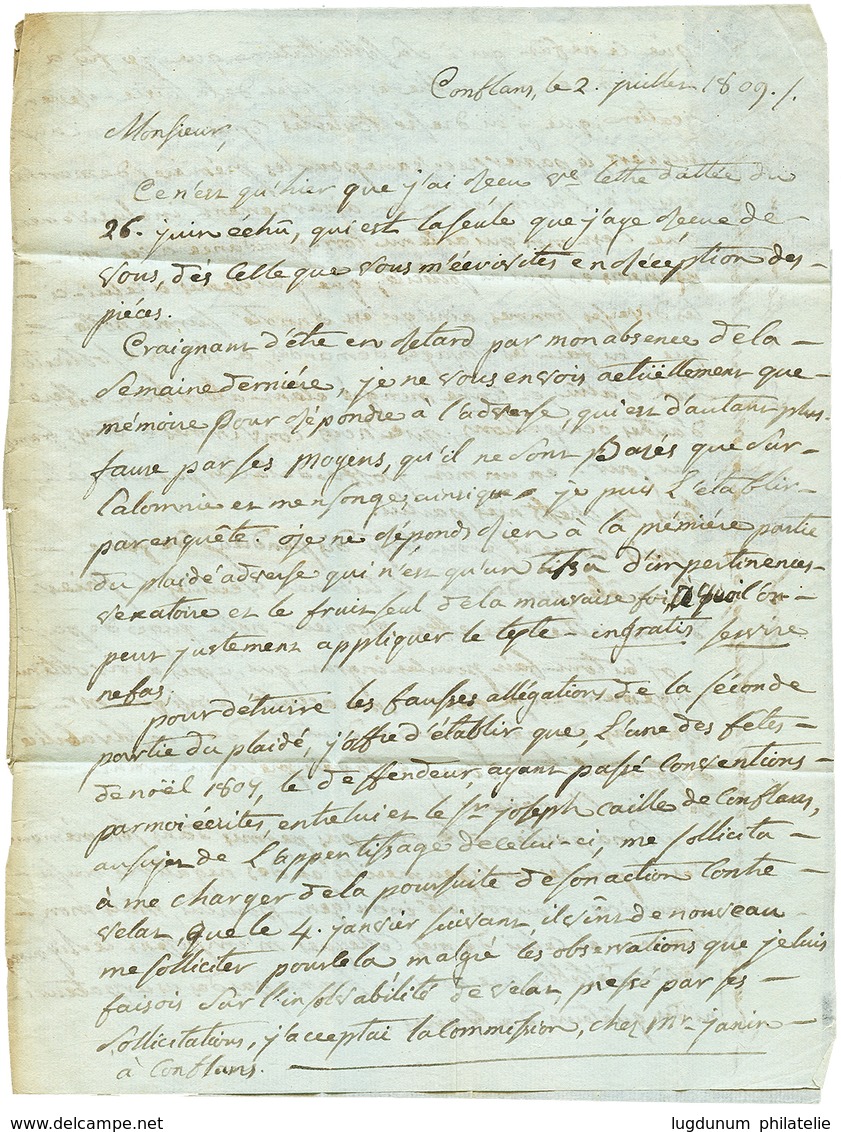 Conflans, le 2. juillet 1809./.
Monsieur,
Ce n'est qu'hier que j'ai reçu vre lettre dattée du
26. juin échu, qui est la seule que j'aye recue de
vous, dès celle que vous m'écrivites en réception des
piéces.
Craignant d'être en retard par mon absence de la
semaine derniére, je ne vous envois actuëllement que
mémoire pour répondre à l'adverse, qui est d'autant plus
faux par ses moyens, qu'il ne sont basés que sur
calomnie et mensonge, ainsi que je puis l'établir
par enquête. je ne réponds rien à la premiére partie
du plaidé adverse qui n'est qu'un tissu d'impertinences
vexatoire et le fruit seul de la mauvaise foi, à quoi l'on
peut justement appliquer le texte - ingratis servire
nefas.
pour détruire les fausses allégations de la séconde
partie du plaidé, j'affre d'établir que, l'une des fetes
de noël 1807, le deffendeur, ayant passé conventions
par moi écrites, entre lui et le Sr. joseph Caille de Conflans,
au sujet de l'apprentissage de celui-ci, me sollicita
à me charger de la poursuite de son action contre
velat, que le 4. janvier suivant, il vint de nouveau
me solliciter pour cela malgré les observations que je lui
faisois sur l'insolvabilité de velat, pressé par ses
sollicitations, j'acceptai la commission, chez Mr. janin
à Conflans.
lugdunum philatelie